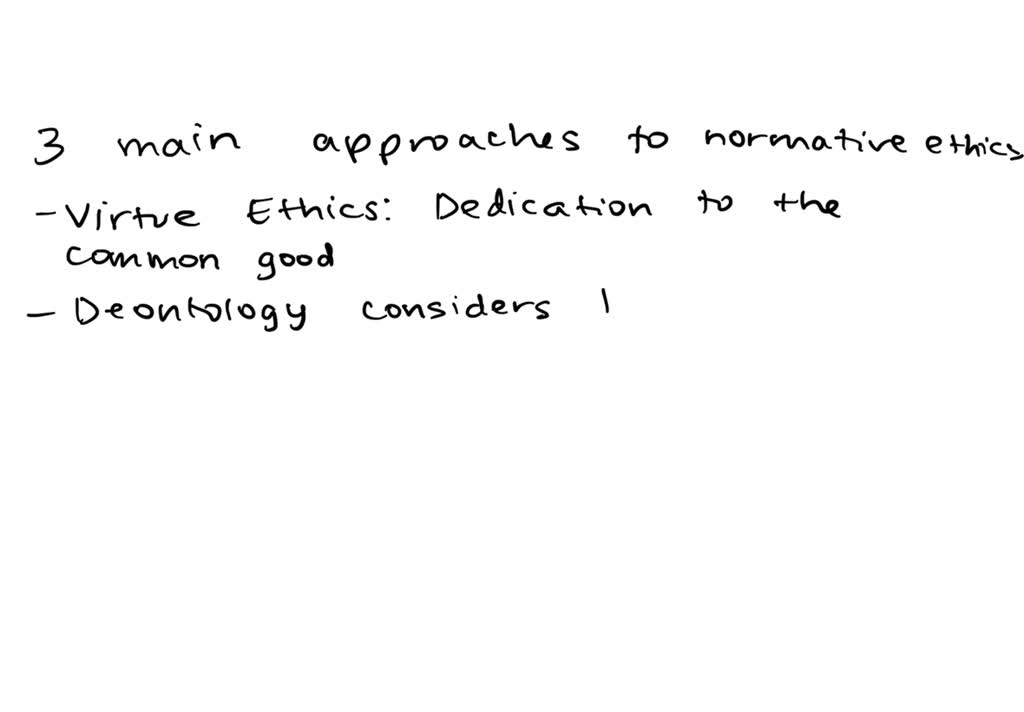 3 main approaches to normative ethics
- Virtue Ethics: Dedication to the
common good
- Deontology considers